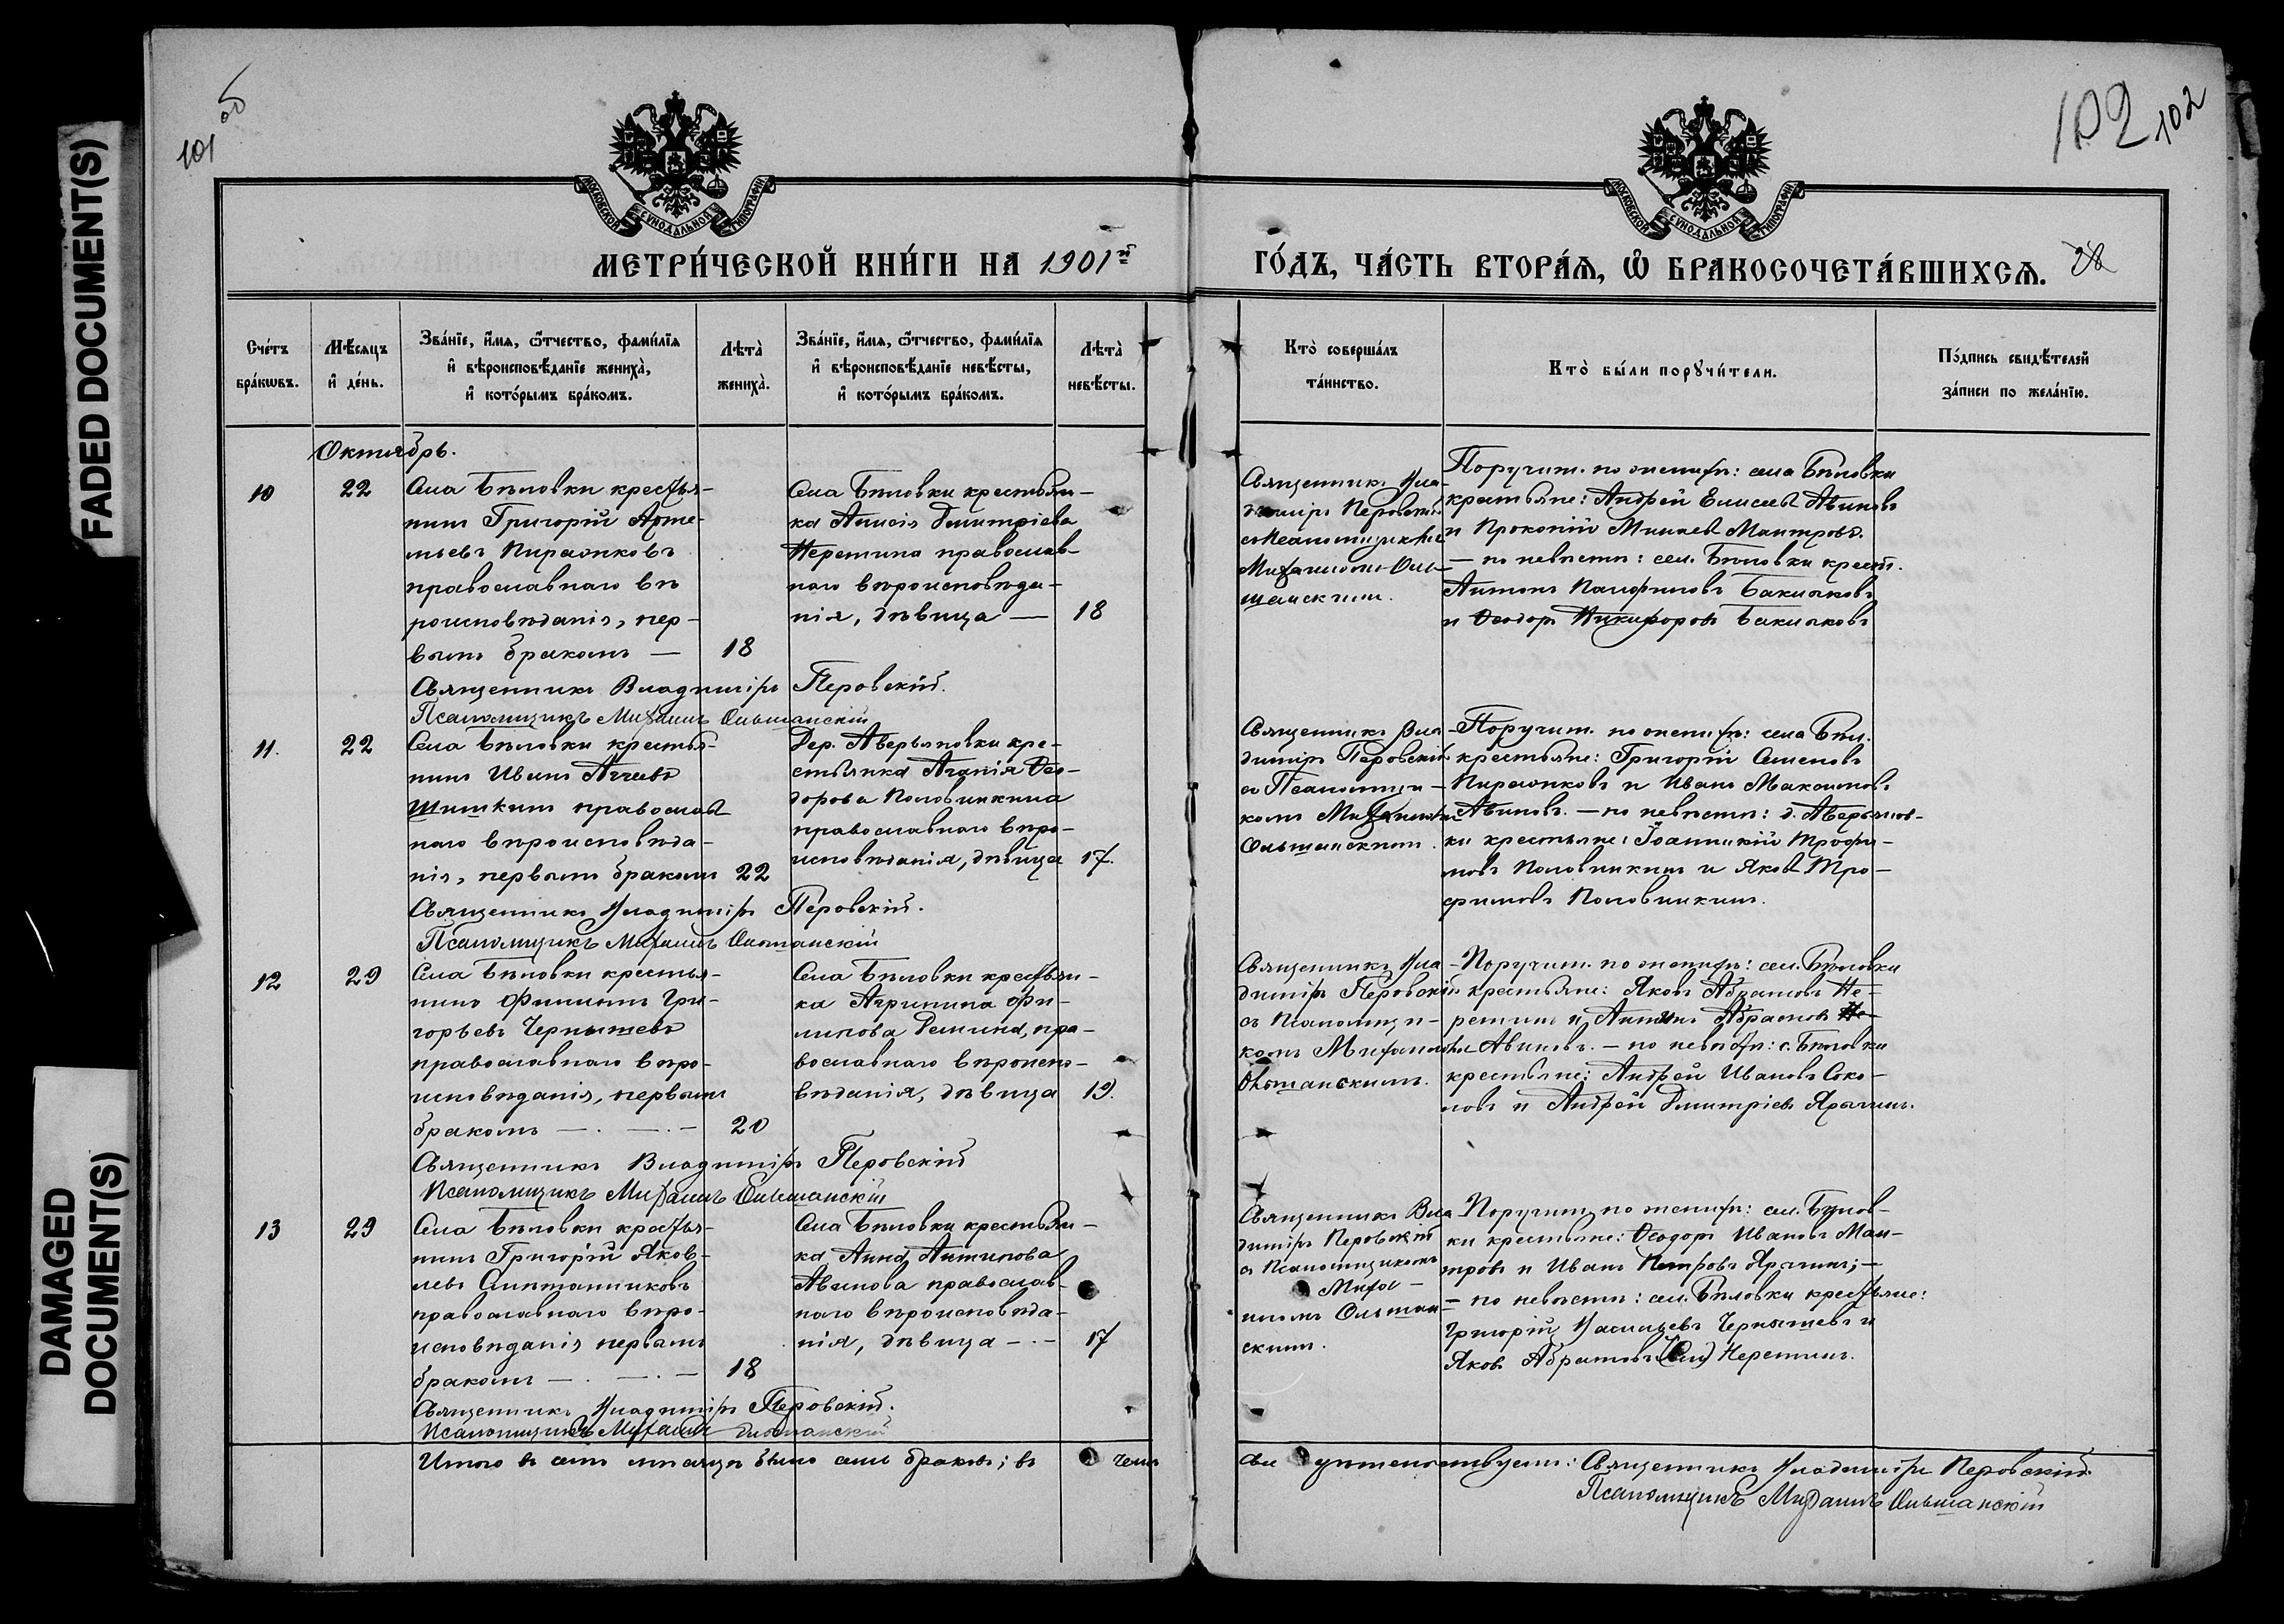 FADED DOCUMENT(S)
DAMAGED
DOCUMENT(S)
101 об
102
102
МОСКОВСКОЙ СѴНОДАЛЬНОЙ ТИПОГРАФІИ
МОСКОВСКОЙ СѴНОДАЛЬНОЙ ТИПОГРАФІИ
МЕТРИ́ЧЕСКОЙ КНИ́ГИ НА 1901й
ГО́ДЪ, ЧА́СТЬ ВТОРА́Ѧ, Ѽ БРАКОСОЧЕТА́ВШИХСѦ.
Сче́тъ
бра́кѡвъ.
Мѣ́сѧцъ
и҆ де́нь.
Зва́нїе, и҆́мѧ, ѻ҆́тчество, фами́лїѧ
и҆ вѣроисповѣ́данїе жениха̀,
и҆ кото́рымъ бра́комъ.
Лѣта̀
жениха̀.
Зва́нїе, и҆́мѧ, ѻ҆́тчество, фами́лїѧ
и҆ вѣроисповѣ́данїе невѣ́сты,
и҆ кото́рымъ бра́комъ.
Лѣта̀
невѣ́сты.
Кто̀ соверша́лъ
та́инство.
Кто̀ бы́ли порꙋчи́тели.
По́дпись свидѣ́телей
за́писи по жела́нїю.
Октябрь.
10
22
Села Бѣловки крестья-
нинъ Григорій Арте-
мьевъ Пирожковъ
православнаго вѣ
роисповѣданія, пер-
вымъ бракомъ —
18
Села Бѣловки крестьян-
ка Анисія Димитріева
Черетина православ-
наго вѣроисповѣда-
нія, дѣвица —
18
Священникъ Вла-
диміръ Перовскій
съ Псаломщикомъ
Михаиломъ Оль-
шанскимъ.
Поручит. по женихѣ: села Бѣловки
крестьяне: Андрей Елисеевъ Авиновъ
и Прокопій Минаевъ Мантровъ.
— по невѣстѣ: сел. Бѣловки крест.
Антонъ Памфиловъ Бакшковъ
и Ѳеодоръ Никифоровъ Бакшковъ
Священникъ Владиміръ Перовскій.
Псаломщикъ Михаилъ Ольшанскій
11.
22
Села Бѣловки крестья-
нинъ Иванъ Аггеевъ
Шишкинъ православ
наго вѣроисповѣда-
нія, первымъ бракомъ
22
Дер. Аверьяновки кре-
стьянка Агапія Ѳео-
дорова Половинкина
православнаго вѣро-
исповѣданія, дѣвица
17.
Священникъ Вла
диміръ Перовскій
съ Псаломщи-
комъ Михаиломъ
Ольшанскимъ.
Поручит. по женихѣ: села Бѣл.
крестьяне: Григорій Семеновъ
Пирожковъ и Иванъ Максимовъ
Авиновъ. — по невѣстѣ: д. Аверьянов-
ки крестьяне: Іоанникій Трофи-
мовъ Половинкинъ и Яковъ Тро-
фимовъ Половинкинъ.
Священникъ Владиміръ Перовскій.
Псаломщикъ Михаилъ Ольшанскій
12
29
Села Бѣловки крестья-
нинъ Филиппъ Гри-
горьевъ Чернышевъ
православнаго вѣро-
исповѣданія, первымъ
бракомъ —
20
Села Бѣловки крестьян-
ка Агрипина Фи-
липова Демина, пра-
вославнаго вѣроиспо-
вѣданія, дѣвица
19.
Священникъ Вла
диміръ Перовскій
съ Псаломщи-
комъ Михаиломъ
Ольшанскимъ.
Поручит. по женихѣ: сел. Бѣловки
крестьяне: Яковъ Абрамовъ Че-
ретинъ и Антипъ Абрамовъ
Авиновъ. — по невѣстѣ: с. Бѣловки
крестьяне: Андрей Ивановъ Соко-
ловъ и Андрей Димитріевъ Ярыгинъ.
Священникъ Владиміръ Перовскій
Псаломщикъ Михаилъ Ольшанскій
13
29
Села Бѣловки крестья-
нинъ Григорій Яков-
левъ
православнаго вѣро-
исповѣданія первымъ
бракомъ —
18
Села Бѣловки крестьян-
ка Анна Антипова
Авинова православ-
наго вѣроисповѣда-
нія, дѣвица —
17
Священникъ Вла
диміръ Перовскій
съ Псаломщикомъ
Миха-
иломъ Ольшан-
скимъ.
Поручит. по женихѣ: сел. Бѣлов-
ки крестьяне: Ѳеодоръ Ивановъ Ман-
тровъ и Иванъ Петровъ Ярыгинъ; —
— по невѣстѣ: сел. Бѣловки крестьяне:
Григорій Чернышевъ и
Яковъ Абрамовъ Черетинъ.
Священникъ Владиміръ Перовскій.
Псаломщикъ Михаилъ Ольшанскій
Итого въ семъ мѣсяцѣ было семь браковъ; въ чемъ
свидѣтельствуемъ: Священникъ Владиміръ Перовскій.
Псаломщикъ Михаилъ Ольшанскій